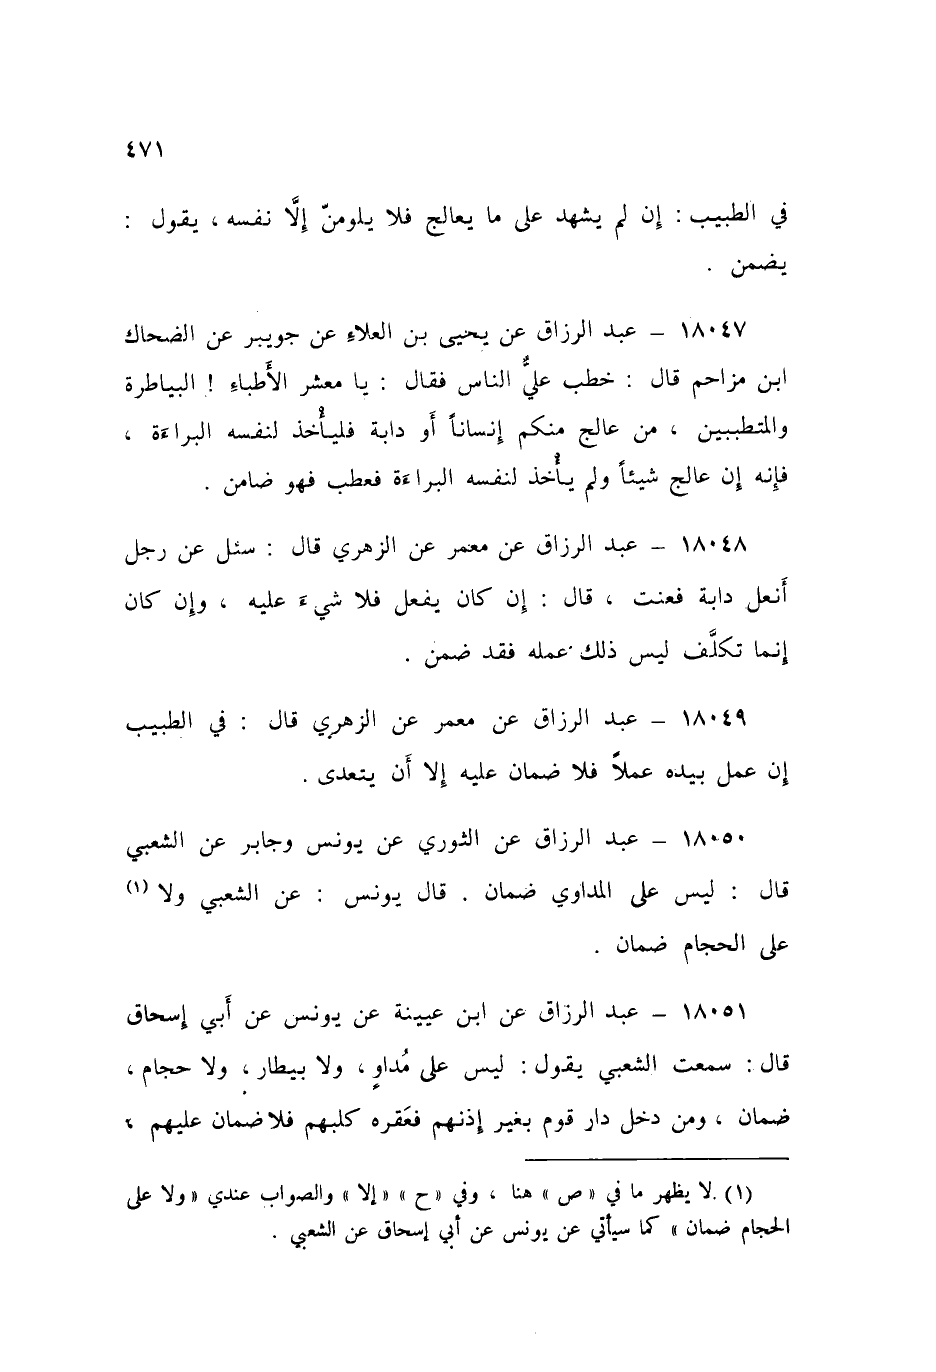 ٤٧١
في الطبيب : إن لم يشهد على ما يعالج فلا يلومنّ إلَّا نفسه ، يقول :
يضمن .
١٨٠٤٧ – عبد الرزاق عن يحيى بن العلاء عن جويبر عن الضحاك
ابن مزاحم قال : خطب عليٌّ الناس فقال : يا معشر الأَطباء ! البياطرة
والمتطببين ، من عالج منكم إنساناً أو دابة فليأْخذ لنفسه البراءَة ،
فإنه إن عالج شيئاً ولم يأْخذ لنفسه البراءَة فعطب فهو ضامن .
١٨٠٤٨ – عبد الرزاق عن معمر عن الزهري قال : سئل عن رجل
أَنعل دابة فعنت ، قال : إن كان يفعل فلا شيءَ عليه ، وإن كان
إنما تكلَّف ليس ذلك عمله فقد ضمن .
١٨٠٤٩ – عبد الرزاق عن معمر عن الزهري قال : في الطبيب
إن عمل بيده عملاً فلا ضمان عليه إلا أَن يتعدى .
١٨٠٥٠ – عبد الرزاق عن الثوري عن يونس وجابر عن الشعبي
قال : ليس على المداوي ضمان . قال يونس : عن الشعبي ولا (١)
على الحجام ضمان .
١٨٠٥١ – عبد الرزاق عن ابن عيينة عن يونس عن أَبي إسحاق
قال : سمعت الشعبي يقول : ليس على مُداوٍ ، ولا بيطار ، ولا حجام ،
ضمان ، ومن دخل دار قوم بغير إذنهم فعَقره كلبهم فلا ضمان عليهم ،
(١) لا يظهر ما في « ص » هنا ، وفي « ح » « إلا » والصواب عندي « ولا على
الحجام ضمان » كما سيأتي عن يونس عن أبي إسحاق عن الشعبي .